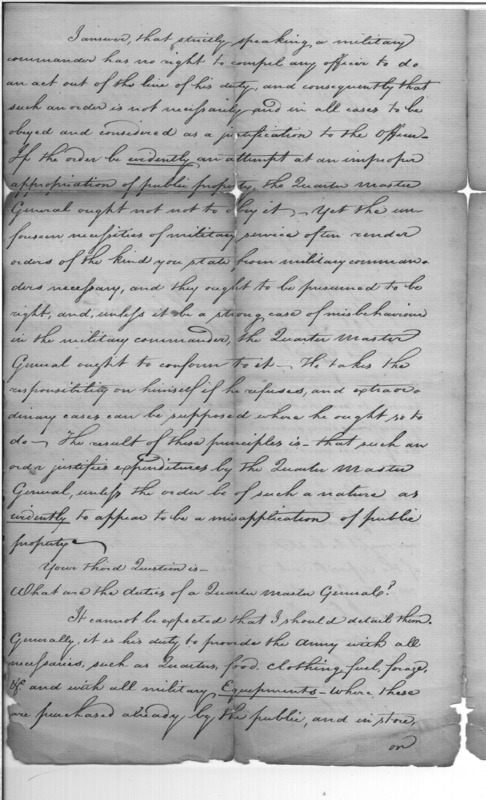 I answer, that strictly speaking, a military
commander has no right to compel any officer to do
an act out of the line of his duty, and consequently that
such an order is not necessarily and in all cases to be
obeyed and considered as a justification to the Officer—
If the order be evidently an attempt at an improper
appropriation of public property, the Quarter Master
General ought not not to obey it— Yet the un-
foreseen necessities of military service often render
orders of the kind you state from military comman-
ders necessary, and they ought to be presumed to be
right, and, unless it be a strong case of misbehaviour
in the military commander, the Quarter Master
General ought to conform to it— He takes the
responsibility on himself if he refuses, and extraor-
dinary cases can be supposed where he ought so to
do— The result of these principles is— that such an
order justifies expenditures by the Quarter Master
General, unless the order be of such a nature as
evidently to appear to be a misapplication of public
property—
Your third Question is—
What are the duties of a Quarter Master General?
It cannot be expected that I should detail them.
Generally, it is his duty to provide the Army with all
necessaries, such as Quarters, food, clothing, fuel, forage,
&c and with all military Equipments— Where these
are purchased already by the public, and in store,
on